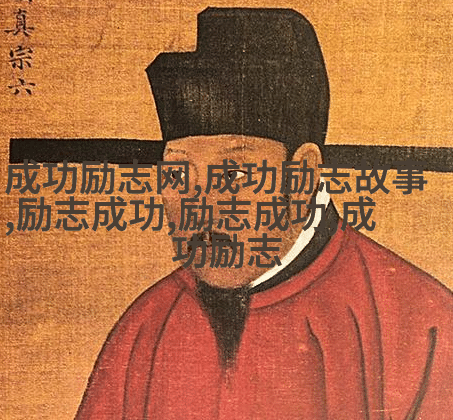 真宗六
成功励志网,成功励志故事
,励志成功,励志成功,成
功励志